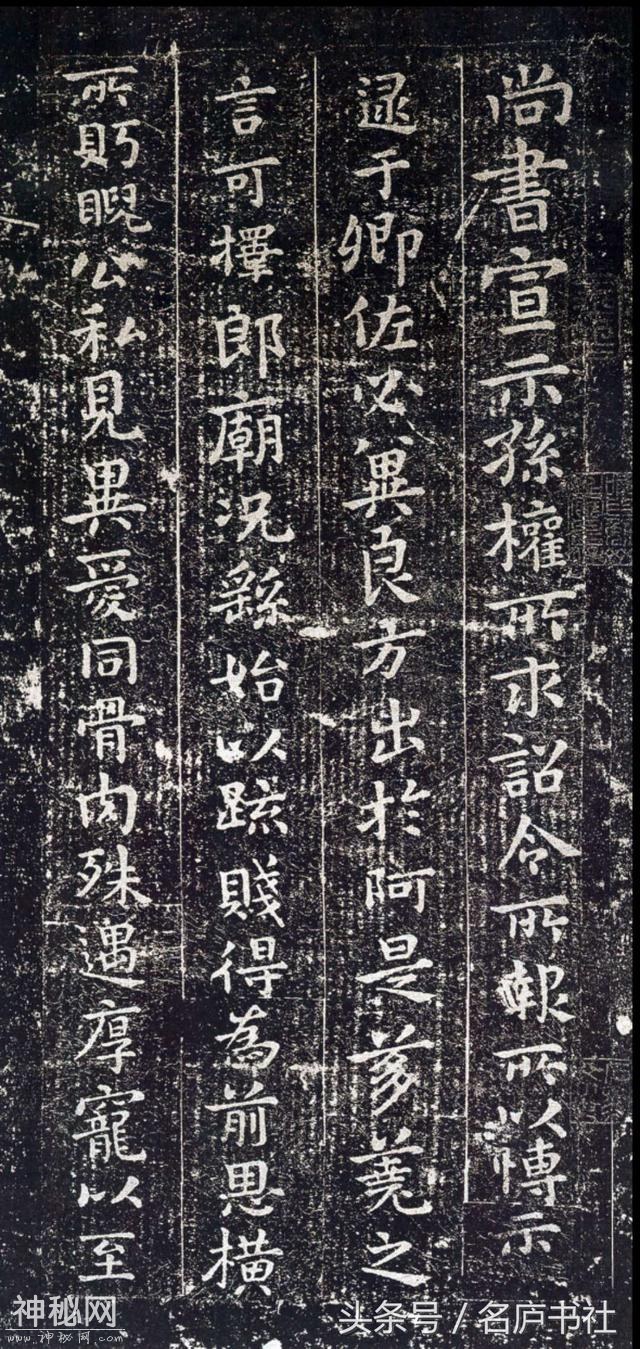 尚書宣示孫權所求詔令所報所以博示
逮于卿佐必冀良方出於阿是芻蕘之
言可擇郎廟況繇始以疏賤得為前恩橫
所眄睨公私見異愛同骨肉殊遇厚寵以至
神秘网
www.神秘网.com
头条号 / 名庐书社